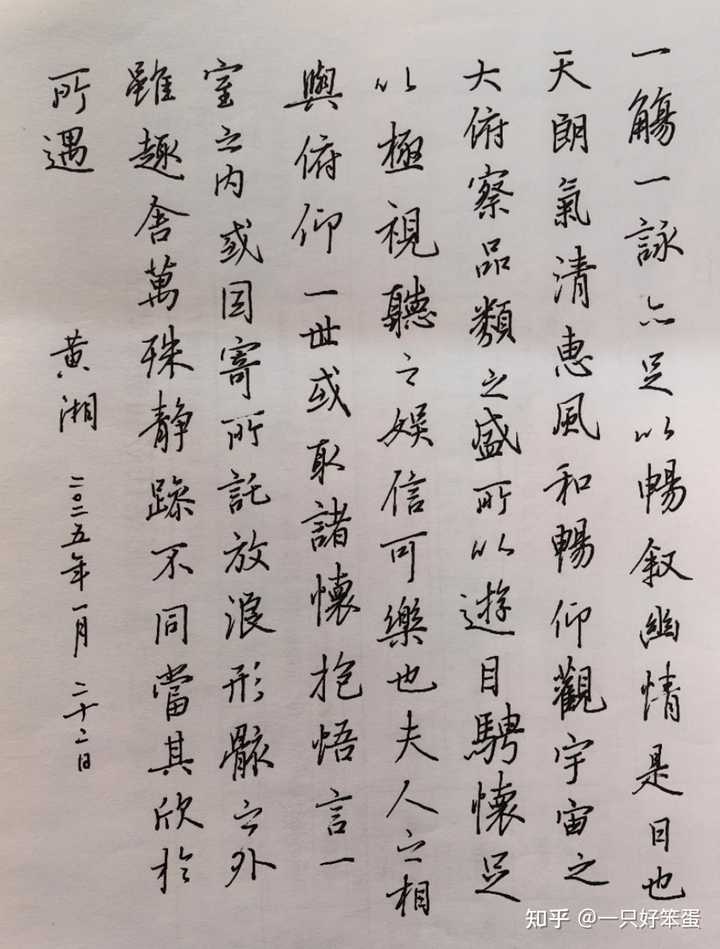 一觴一詠亦足以暢叙幽情是日也
天朗氣清惠風和暢仰觀宇宙之
大俯察品類之盛所以遊目騁懷足
以極視聽之娛信可樂也夫人之相
與俯仰一世或取諸懷抱悟言一
室之内或因寄所託放浪形骸之外
雖趣舍萬殊静躁不同當其欣於
所遇
黄湘 二〇二五年一月二十二日
知乎 @一只好笨蛋